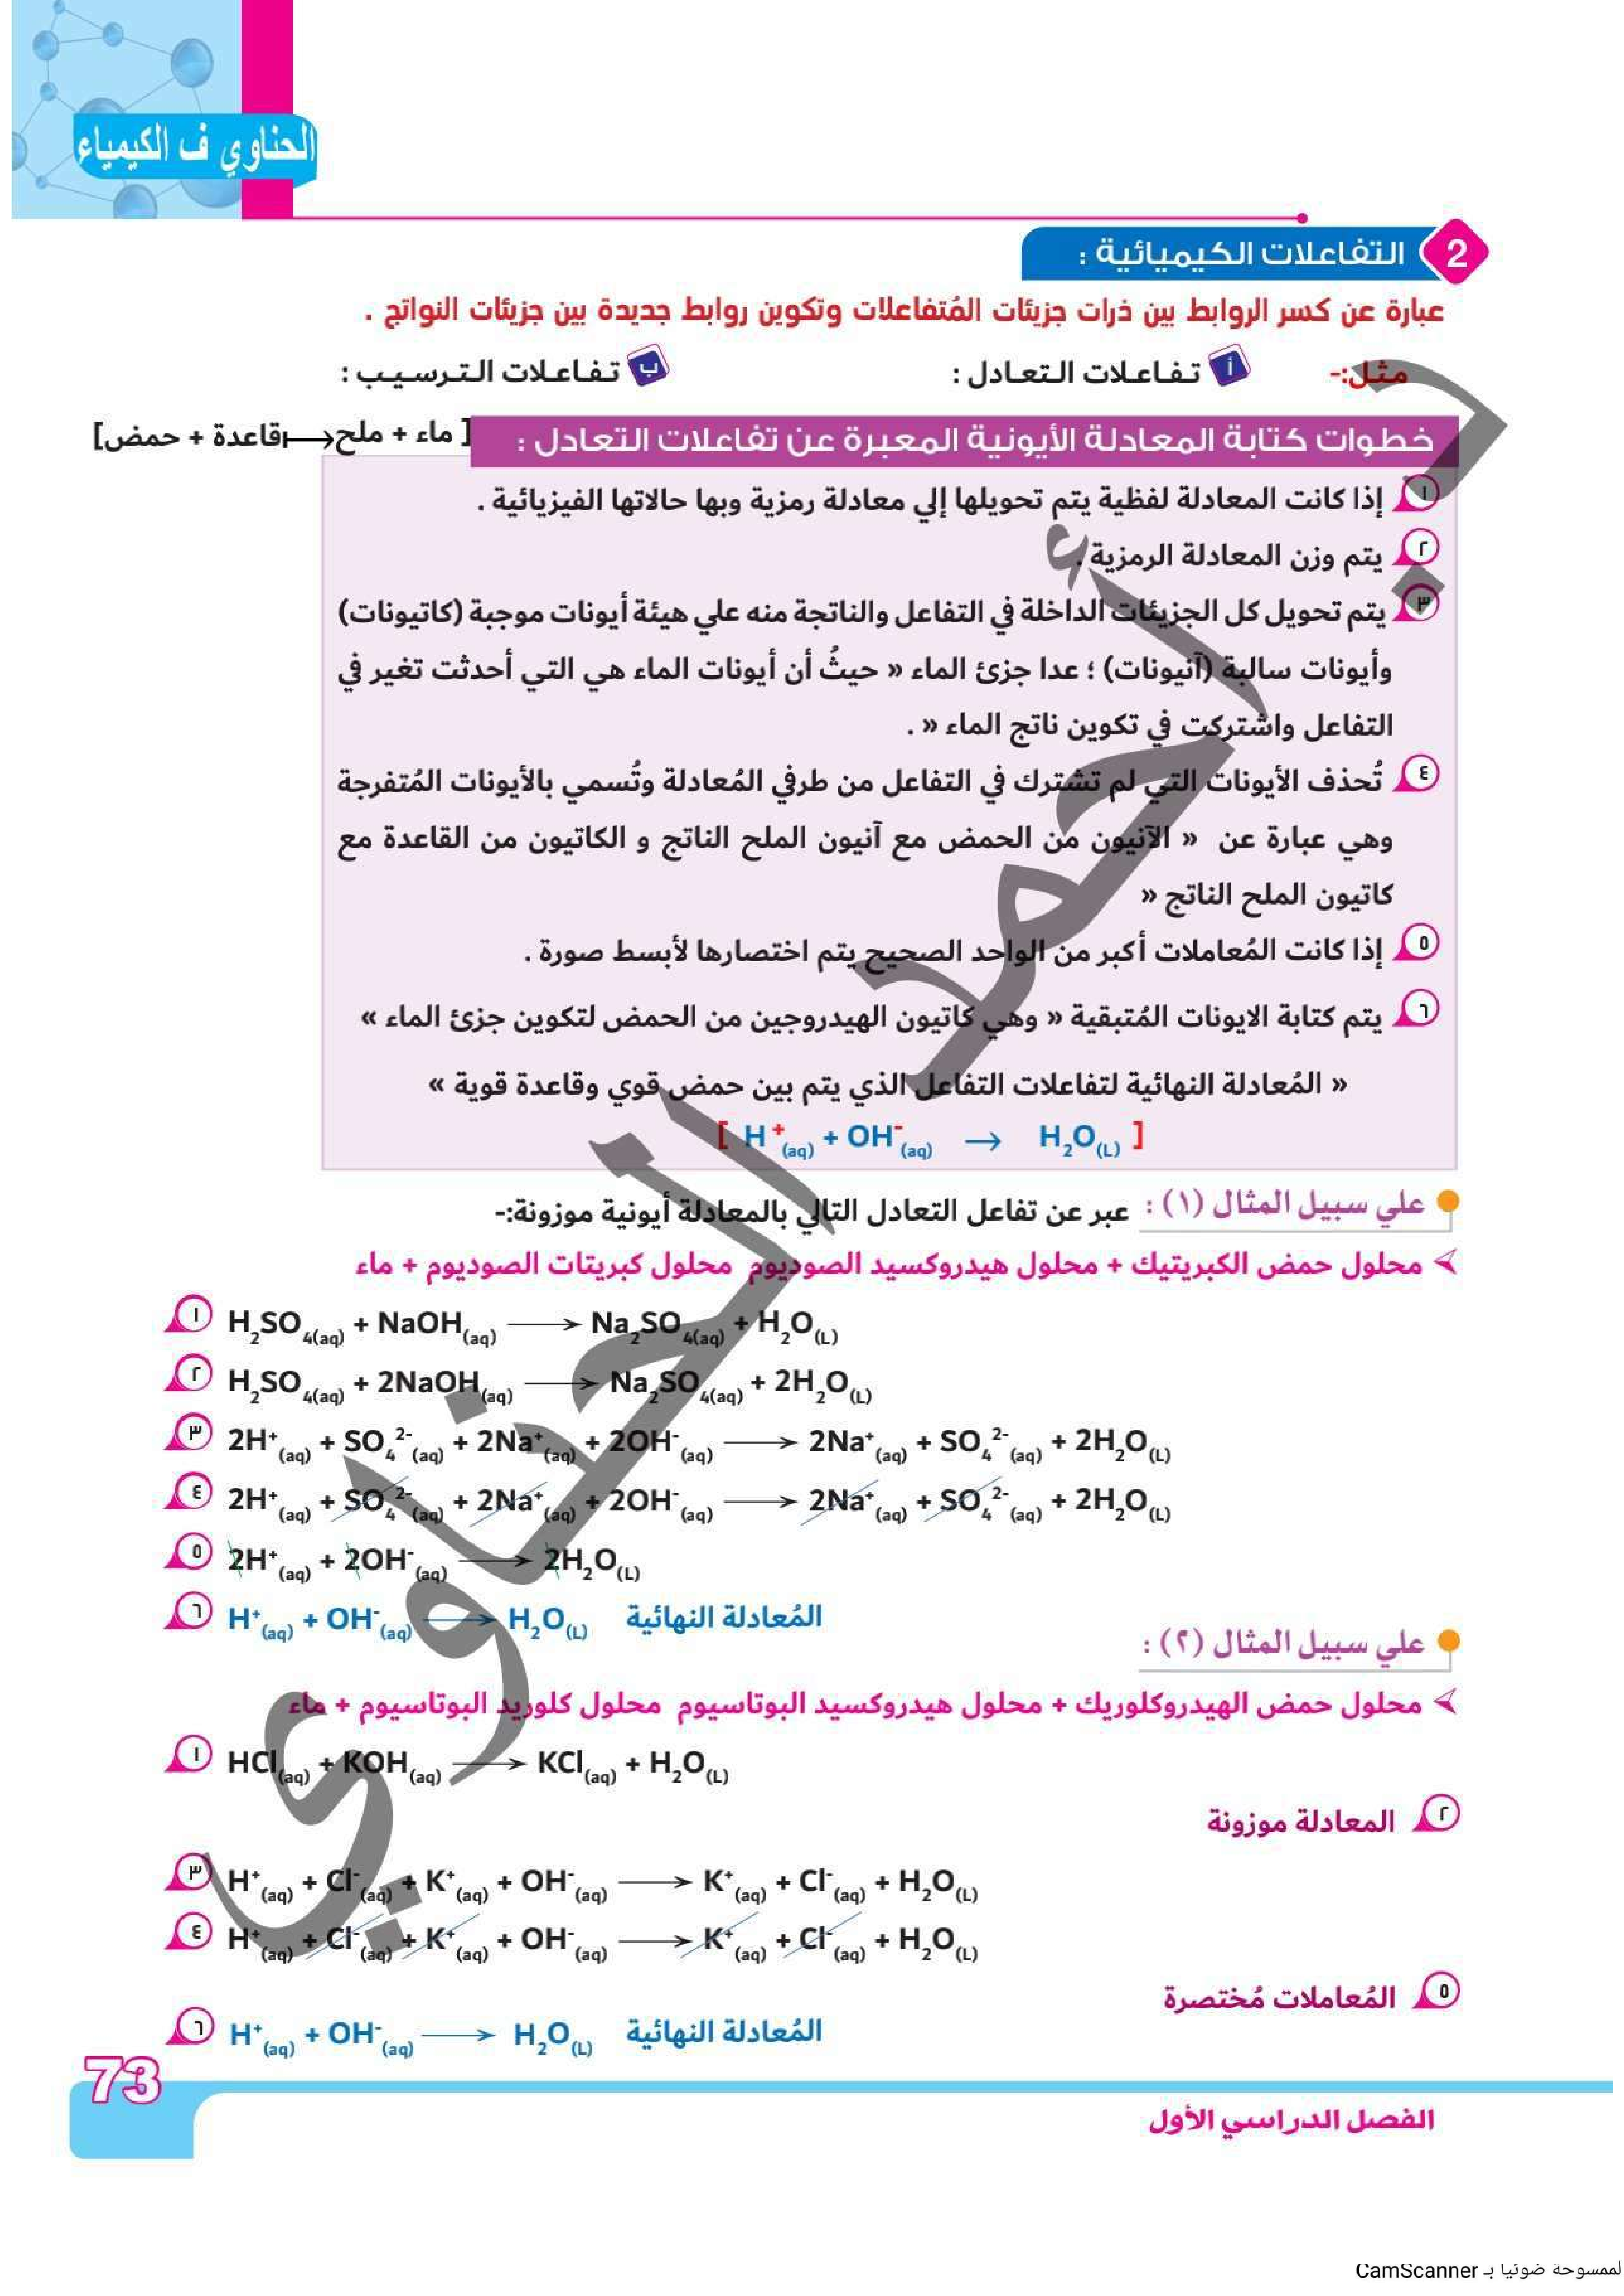 الحناوي ف الكيمياء
2 التفاعلات الكيميائية :
عبارة عن كسر الروابط بين ذرات جزيئات المُتفاعلات وتكوين روابط جديدة بين جزيئات النواتج .
مثل:- أ تفاعلات التعادل : ب تفاعلات الترسيب :
خطوات كتابة المعادلة الأيونية المعبرة عن تفاعلات التعادل : [ ماء + ملح ⟼ قاعدة + حمض]
١ إذا كانت المعادلة لفظية يتم تحويلها إلي معادلة رمزية وبها حالاتها الفيزيائية .
٢ يتم وزن المعادلة الرمزية .
٣ يتم تحويل كل الجزيئات الداخلة في التفاعل والناتجة منه علي هيئة أيونات موجبة (كاتيونات)
وأيونات سالبة (آنيونات) ؛ عدا جزئ الماء « حيثُ أن أيونات الماء هي التي أحدثت تغير في
التفاعل واشتركت في تكوين ناتج الماء » .
٤ تُحذف الأيونات التي لم تشترك في التفاعل من طرفي المُعادلة وتُسمي بالأيونات المُتفرجة
وهي عبارة عن « الآنيون من الحمض مع آنيون الملح الناتج و الكاتيون من القاعدة مع
كاتيون الملح الناتج »
٥ إذا كانت المُعاملات أكبر من الواحد الصحيح يتم اختصارها لأبسط صورة .
٦ يتم كتابة الايونات المُتبقية « وهي كاتيون الهيدروجين من الحمض لتكوين جزئ الماء »
« المُعادلة النهائية لتفاعلات التفاعل الذي يتم بين حمض قوي وقاعدة قوية »
[ H⁺(aq) + OH⁻(aq) → H₂O(L) ]
علي سبيل المثال (١) : عبر عن تفاعل التعادل التالي بالمعادلة أيونية موزونة:-
➢ محلول حمض الكبريتيك + محلول هيدروكسيد الصوديوم محلول كبريتات الصوديوم + ماء
١ H₂SO₄(aq) + NaOH(aq) ⟶ Na₂SO₄(aq) + H₂O(L)
٢ H₂SO₄(aq) + 2NaOH(aq) ⟶ Na₂SO₄(aq) + 2H₂O(L)
٣ 2H⁺(aq) + SO₄²⁻(aq) + 2Na⁺(aq) + 2OH⁻(aq) ⟶ 2Na⁺(aq) + SO₄²⁻(aq) + 2H₂O(L)
٤ 2H⁺(aq) + SO₄²⁻(aq) + 2Na⁺(aq) + 2OH⁻(aq) ⟶ 2Na⁺(aq) + SO₄²⁻(aq) + 2H₂O(L)
٥ 2H⁺(aq) + 2OH⁻(aq) ⟶ 2H₂O(L)
٦ H⁺(aq) + OH⁻(aq) ⟶ H₂O(L) المُعادلة النهائية
علي سبيل المثال (٢) :
➢ محلول حمض الهيدروكلوريك + محلول هيدروكسيد البوتاسيوم محلول كلوريد البوتاسيوم + ماء
١ HCl(aq) + KOH(aq) ⟶ KCl(aq) + H₂O(L)
٢ المعادلة موزونة
٣ H⁺(aq) + Cl⁻(aq) + K⁺(aq) + OH⁻(aq) ⟶ K⁺(aq) + Cl⁻(aq) + H₂O(L)
٤ H⁺(aq) + Cl⁻(aq) + K⁺(aq) + OH⁻(aq) ⟶ K⁺(aq) + Cl⁻(aq) + H₂O(L)
٥ المُعاملات مُختصرة
٦ H⁺(aq) + OH⁻(aq) ⟶ H₂O(L) المُعادلة النهائية
73
الفصل الدراسي الأول
أ. أحمد الحناوي
لممسوحة ضوئيا بـ CamScanner